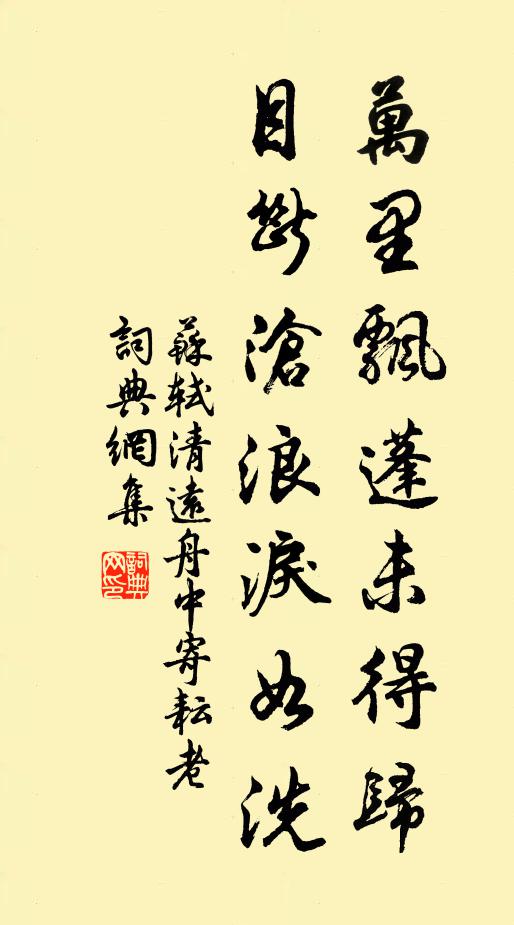 萬里飄蓬未得歸
目斷滄浪淚如洗
蘇軾清遠舟中寄耘老
詞典網集
詞典网印